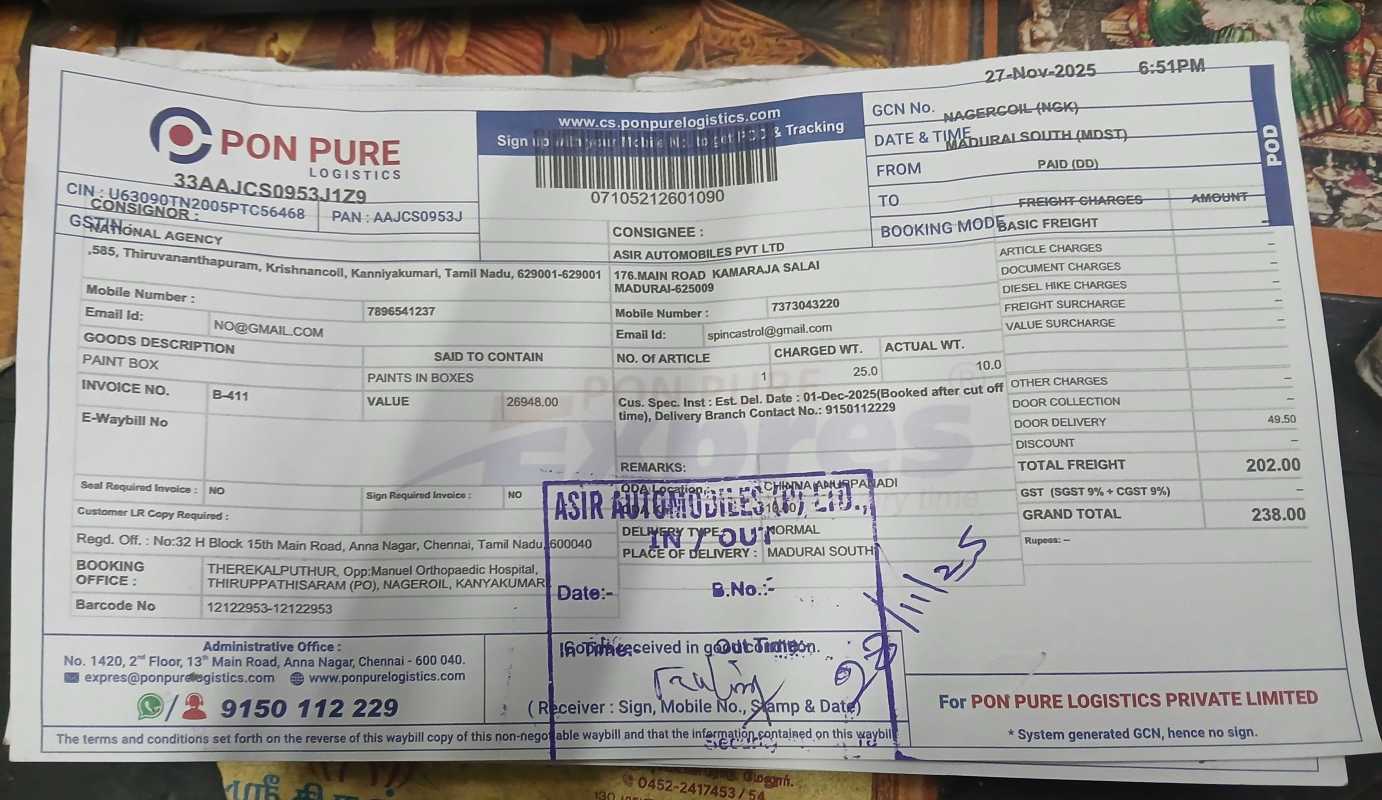 27-Nov-2025 6:51PM
PON PURE
LOGISTICS
33AAJCS0953J1Z9
CIN : U63090TN2005PTC56468
PAN : AAJCS0953J
GSTIN :
www.cs.ponpurelogistics.com
Sign up with your Mobile No. to get POD & Tracking
07105212601090
GCN No.
NAGERCOIL (NGK)
DATE & TIME
MADURAI SOUTH (MDST)
FROM
PAID (DD)
TO
BOOKING MODE
POD
CONSIGNOR :
NATIONAL AGENCY
,585, Thiruvananthapuram, Krishnancoil, Kanniyakumari, Tamil Nadu, 629001-629001
Mobile Number : 7896541237
Email Id: NO@GMAIL.COM
CONSIGNEE :
ASIR AUTOMOBILES PVT LTD
176.MAIN ROAD KAMARAJA SALAI
MADURAI-625009
Mobile Number : 7373043220
Email Id: spincastrol@gmail.com
GOODS DESCRIPTION SAID TO CONTAIN
PAINT BOX PAINTS IN BOXES
INVOICE NO. B-411 VALUE 26948.00
E-Waybill No
NO. Of ARTICLE CHARGED WT. ACTUAL WT.
1 25.0 10.0
Cus. Spec. Inst : Est. Del. Date : 01-Dec-2025(Booked after cut off
time), Delivery Branch Contact No.: 9150112229
PON PURE
Expres
time
REMARKS:
ODA Location : CHINNA ANUPPANADI
10.00
DELIVERY TYPE NORMAL
PLACE OF DELIVERY : MADURAI SOUTH
FREIGHT CHARGES AMOUNT
BASIC FREIGHT –
ARTICLE CHARGES –
DOCUMENT CHARGES –
DIESEL HIKE CHARGES –
FREIGHT SURCHARGE –
VALUE SURCHARGE –
OTHER CHARGES –
DOOR COLLECTION –
DOOR DELIVERY 49.50
DISCOUNT –
TOTAL FREIGHT 202.00
GST (SGST 9% + CGST 9%) –
GRAND TOTAL 238.00
Rupees: –
Seal Required Invoice : NO Sign Required Invoice : NO
Customer LR Copy Required :
Regd. Off. : No:32 H Block 15th Main Road, Anna Nagar, Chennai, Tamil Nadu, 600040
BOOKING OFFICE : THEREKALPUTHUR, Opp:Manuel Orthopaedic Hospital,
THIRUPPATHISARAM (PO), NAGEROIL, KANYAKUMAR
Barcode No 12122953-12122953
ASIR AUTOMOBILES (P) LTD.,
IN / OUT
Date:- B.No.:-
In Time:- Out Time:-
Goods received in good condition.
/11/25
( Receiver : Sign, Mobile No., Stamp & Date)
Administrative Office :
No. 1420, 2nd Floor, 13th Main Road, Anna Nagar, Chennai - 600 040.
expres@ponpurelogistics.com www.ponpurelogistics.com
9150 112 229
For PON PURE LOGISTICS PRIVATE LIMITED
* System generated GCN, hence no sign.
The terms and conditions set forth on the reverse of this waybill copy of this non-negotiable waybill and that the information contained on this waybill
0452-2417453 / 54